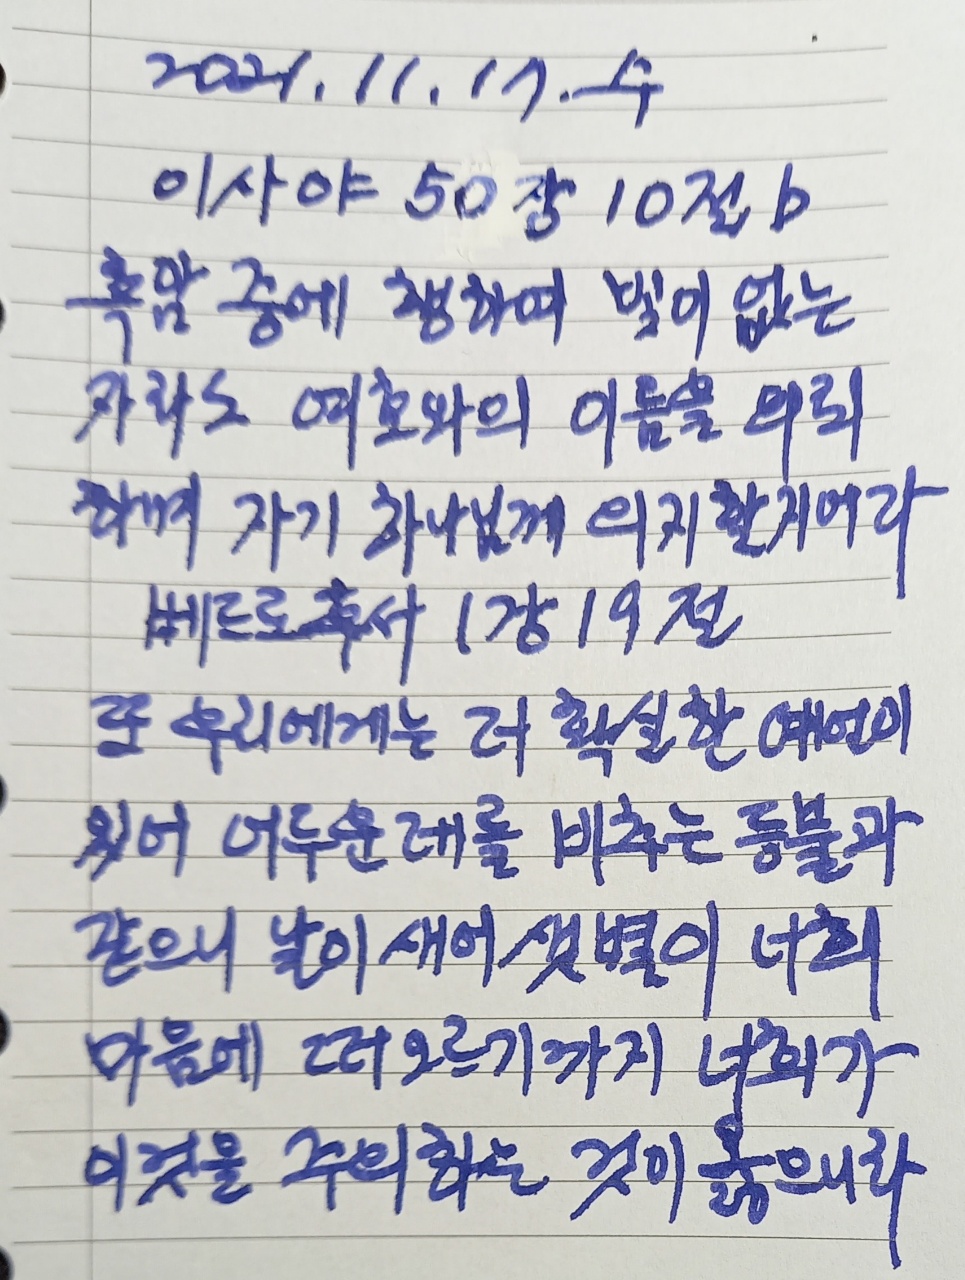 2021.11.17.수
이사야 50장 10절 b
흑암 중에 행하여 빛이 없는
자라도 여호와의 이름을 의뢰
하며 자기 하나님께 의지할지어다
베드로후서 1장 19절
또 우리에게는 더 확실한 예언이
있어 어두운 데를 비추는 등불과
같으니 날이 새어 샛별이 너희
마음에 떠오르기까지 너희가
이것을 주의하는 것이 옳으니라